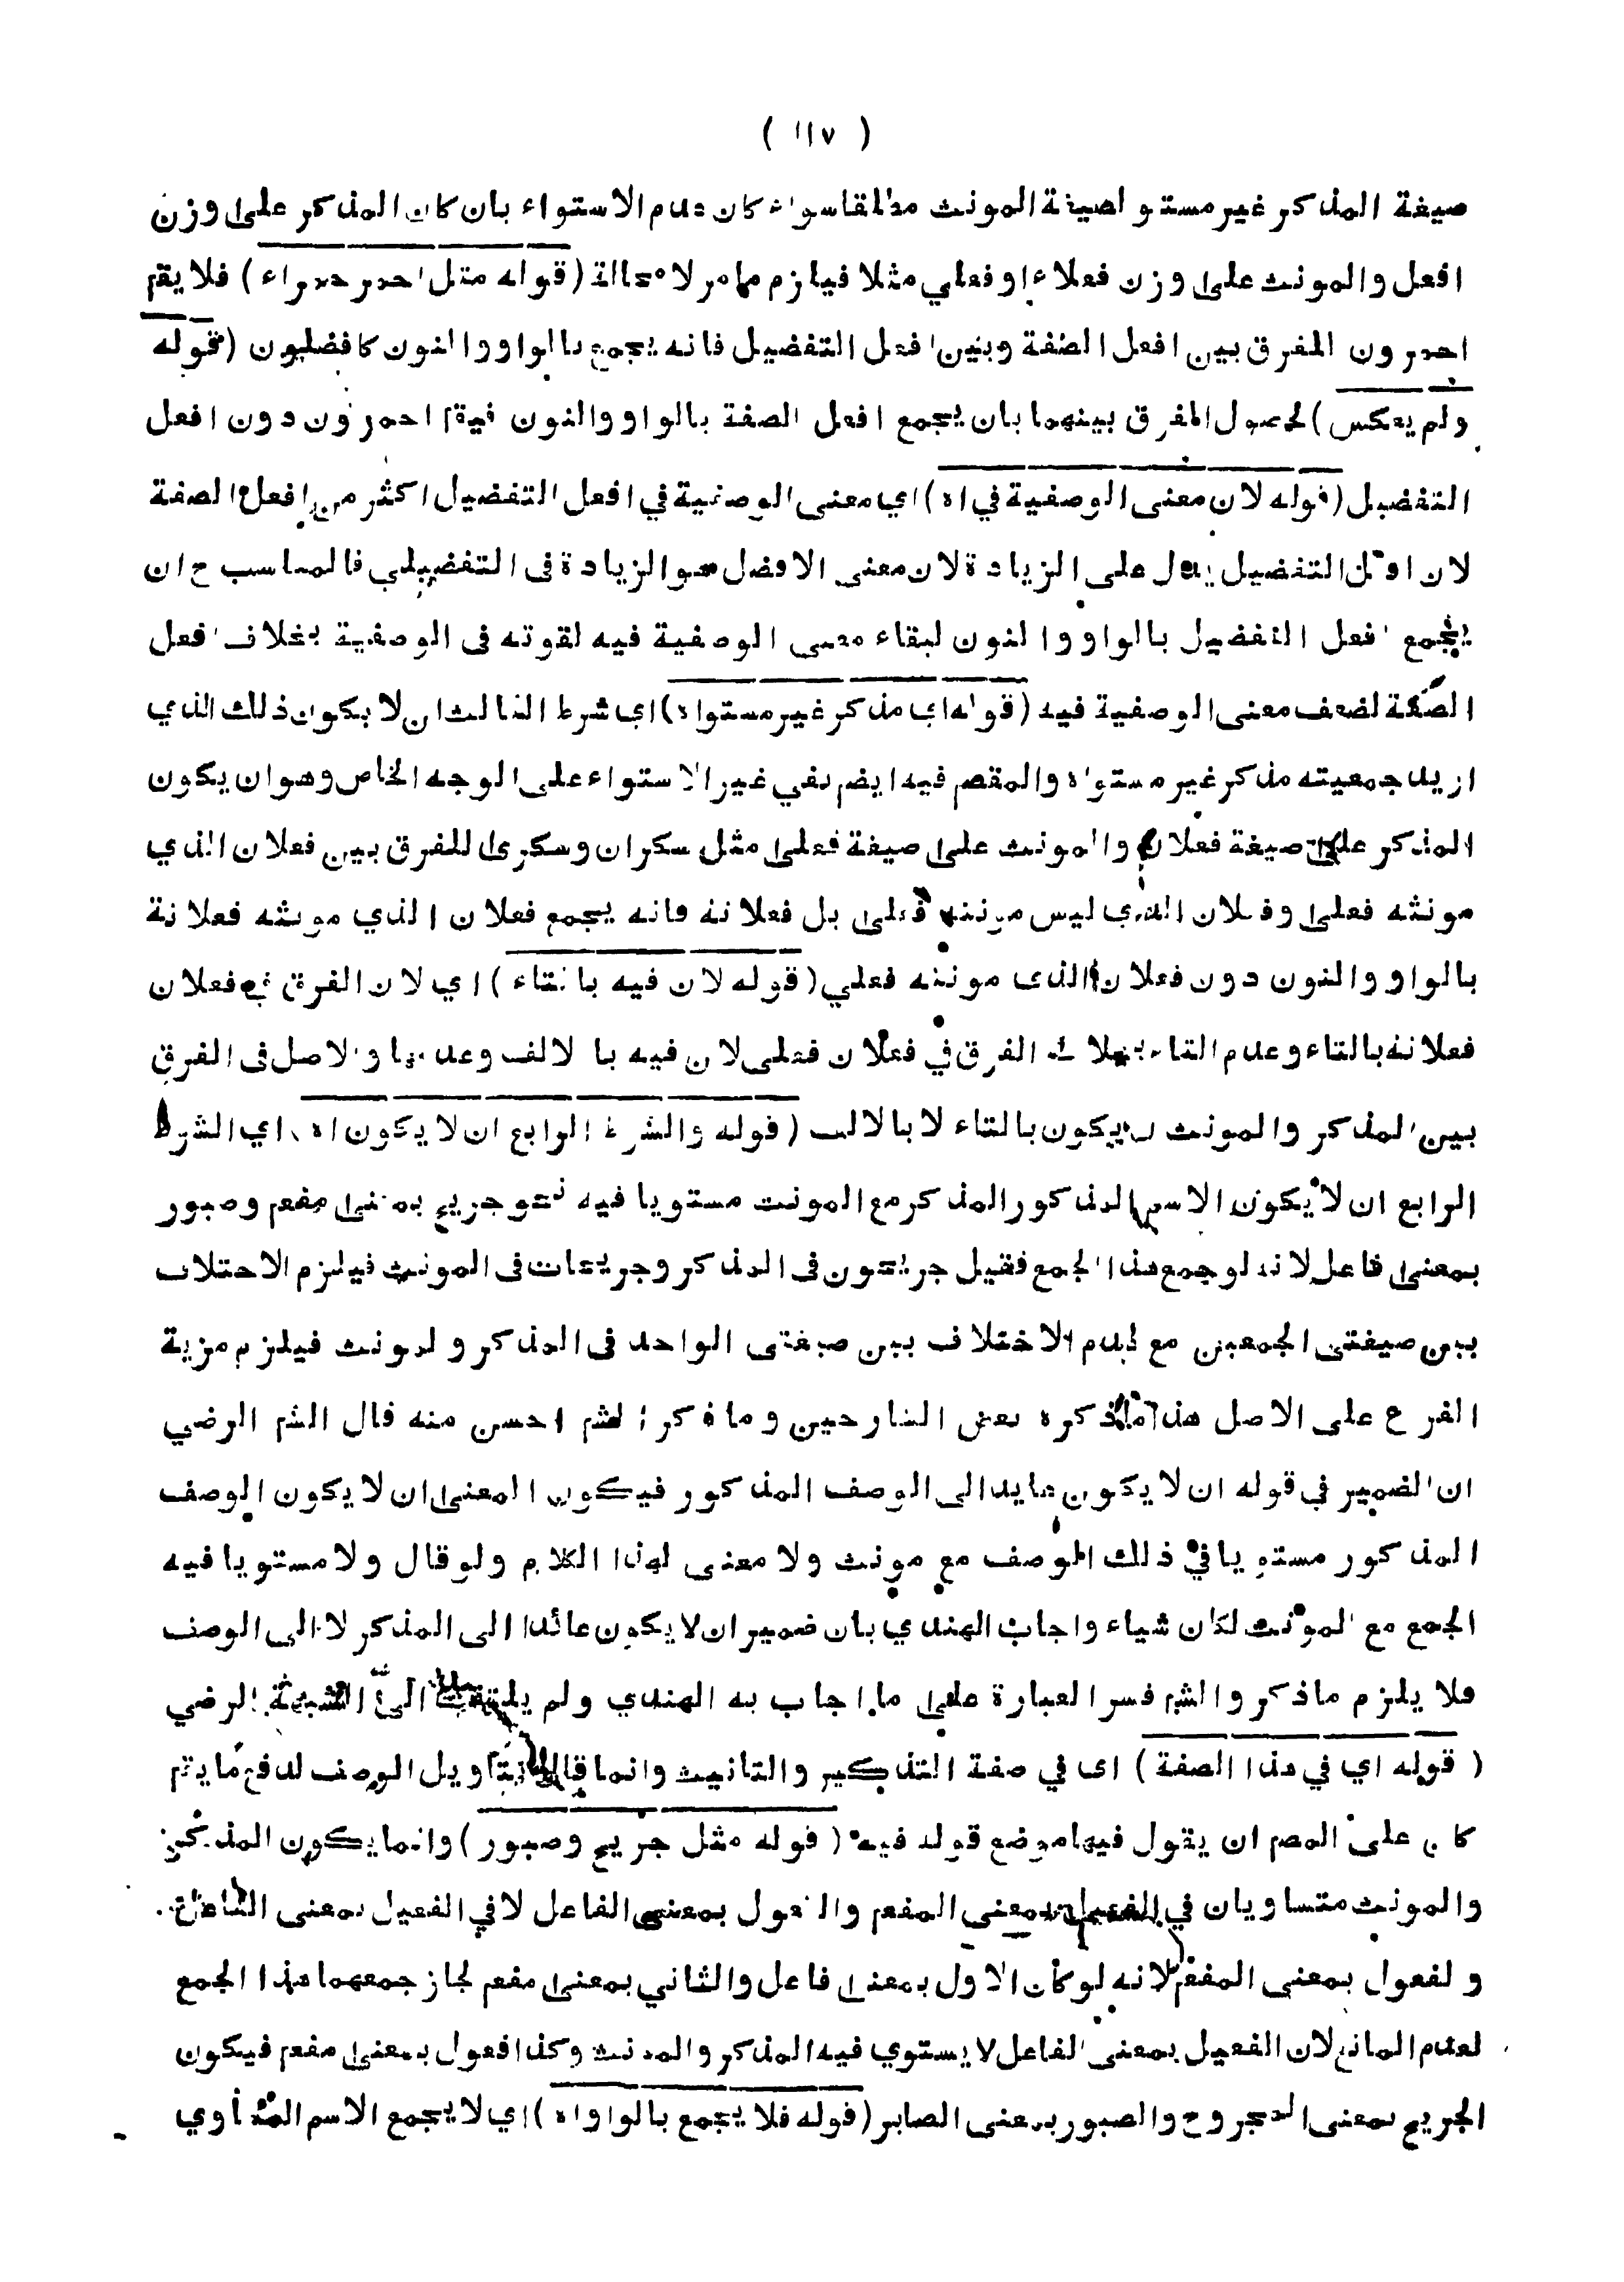 ( ١١٧ )
صيغة المذكر غير مستو لصيغة المونث مطلقا سواء كان عدم الاستواء بان كان المذكر على وزن
افعل والمونث على وزن فعلاء او فعلي مثلا فيلزم ما مر لا محالة (قوله مثل احمر حمراء) فلا يقم
احمرون للفرق بين افعل الصفة وبين افعل التفضيل فانه يجمع بالواو والنون كافضلون (قوله
ولم يعكس) لحصول الفرق بينهما بان يجمع افعل الصفة بالواو والنون فيقم احمرون دون افعل
التفضيل (قوله لان معنى الوصفية في اه) اي معنى الوصفية في افعل التفضيل اكثر من افعل الصفة
لان افعل التفضيل يدل على الزيادة لان معنى الافضل هو الزيادة فى التفضيلي فالمناسب ح ان
يجمع افعل التفضيل بالواو والنون لبقاء معنى الوصفية فيه لقوته فى الوصفية بخلاف افعل
الصفة لضعف معنى الوصفية فيه (قوله اى مذكر غير مستو اه) اى شرط الثالث ان لا يكون ذلك الذي
اريد جمعيته مذكر غير مستو اه والمقصم فيه ايضم نفي غير الاستواء على الوجه الخاص وهو ان يكون
المذكر على صيغة فعلان والمونث على صيغة فعلى مثل سكران وسكرى للفرق بين فعلان الذي
مونثه فعلى وفعلان الذي ليس مونثه فعلى بل فعلانة فانه يجمع فعلان الذي مونثه فعلانة
بالواو والنون دون فعلان الذى مونثه فعلي (قوله لان فيه بالتاء) اي لان الفرق في فعلان
فعلانة بالتاء وعدم التاء بخلاف الفرق في فعلان فعلى لان فيه بالالف وعدمها والاصل فى الفرق
بين المذكر والمونث ان يكون بالتاء لا بالالف (قوله والشرط الرابع ان لا يكون اه) اي الشرط
الرابع ان لا يكون الاسم المذكور المذكر مع المونث مستويا فيه نحو جريح بمعنى مفعم وصبور
بمعنى فاعل لانه لو جمع هذا الجمع فقيل جريحون فى المذكر وجريحات فى المونث فيلزم الاختلاف
بين صيغتى الجمعين مع عدم الاختلاف بين صيغتى الواحد فى المذكر والمونث فيلزم مزية
الفرع على الاصل هذا ما ذكره بعض الشارحين وما ذكر الشم احسن منه قال الشم الرضي
ان الضمير في قوله ان لا يكون عايد الى الوصف المذكور فيكون المعنى ان لا يكون الوصف
المذكور مستويا في ذلك الوصف مع مونث ولا معنى لهذا الكلام ولو قال ولا مستويا فيه
الجمع مع المونث لكان شياء واجاب الهندي بان ضمير ان لا يكون عائدا الى المذكر لا الى الوصف
فلا يلزم ما ذكر والشم فسر العبارة على ما اجاب به الهندي ولم يلتفت الى الشبهة الرضي
(قوله اي في هذا الصفة) اى في صفة التذكير والتانيث وانما قال بتاويل الوصف لدفع ما يتم
كان على المصم ان يقول فيها موضع قوله فيه (قوله مثل جريح وصبور) وانما يكون المذكر
والمونث متساويان في الفعيل بمعنى المفعم والفعول بمعنى الفاعل لا في الفعيل بمعنى الفاعل
والفعول بمعنى المفعم لانه لو كان الاول بمعنى فاعل والثاني بمعنى مفعم لجاز جمعهما هذا الجمع
لعدم المانع لان الفعيل بمعنى الفاعل لا يستوي فيه المذكر والمونث وكذا فعول بمعنى مفعم فيكون
الجريح بمعنى المجروح والصبور بمعنى الصابر (قوله فلا يجمع بالواو اه) اي لا يجمع الاسم المتساوي